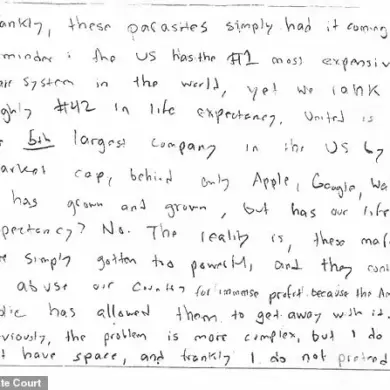 ankly, these parasites simply had it coming
minder: the US has the #1 most expensiv
are system in the world, yet we rank
ghly #42 in life expectancy. United is
e 5th largest company in the US by
arket cap, behind only Apple, Google, Wa
has grown and grown, but has our life
pectancy? No. The reality is, these maf
e simply gotten too powerful, and they cont
abuse our country for immense profit because the Am
blic has allowed them to get away with it.
viously, the problem is more complex, but I do
t have space, and frankly I do not pretend
te Court